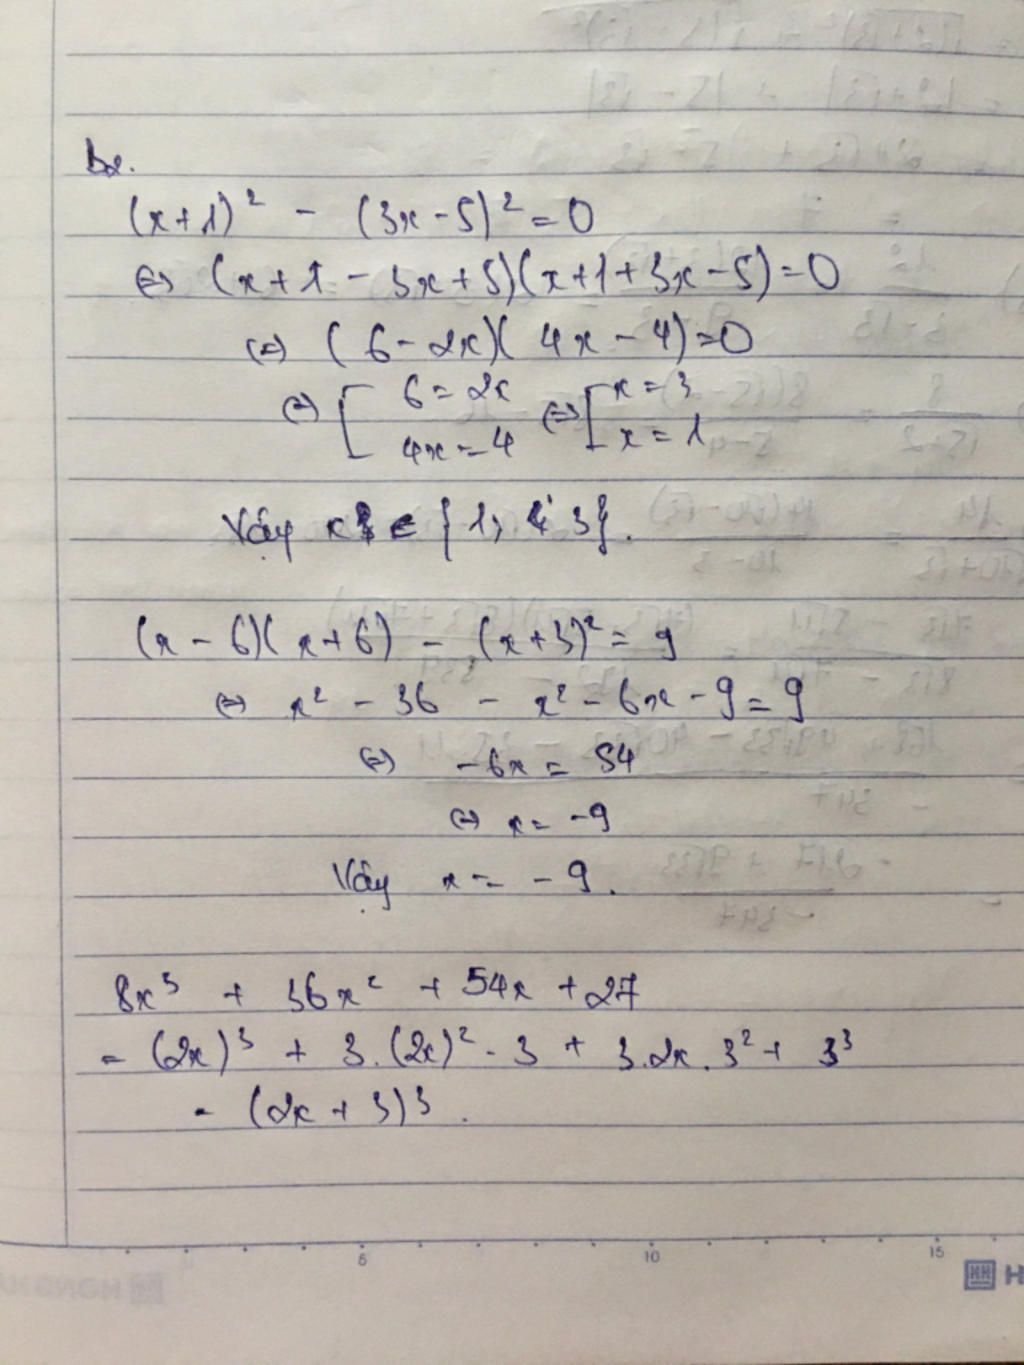 (x+1)² - (3x-5)² = 0
⇔ (x+1-3x+5)(x+1+3x-5)=0
⇔ (6-2x)(4x-4)=0
⇔ [ 6=2x ⇔ [ x=3
4x=4 x=1
Vậy x ∈ {1; 3}.
(x-6)(x+6) - (x+3)² = 9
⇔ x² - 36 - x² - 6x - 9 = 9
⇔ -6x = 54
⇔ x = -9
Vậy x = -9.
8x³ + 36x² + 54x + 27
= (2x)³ + 3.(2x)².3 + 3.2x.3² + 3³
= (2x+3)³.
5 10 15